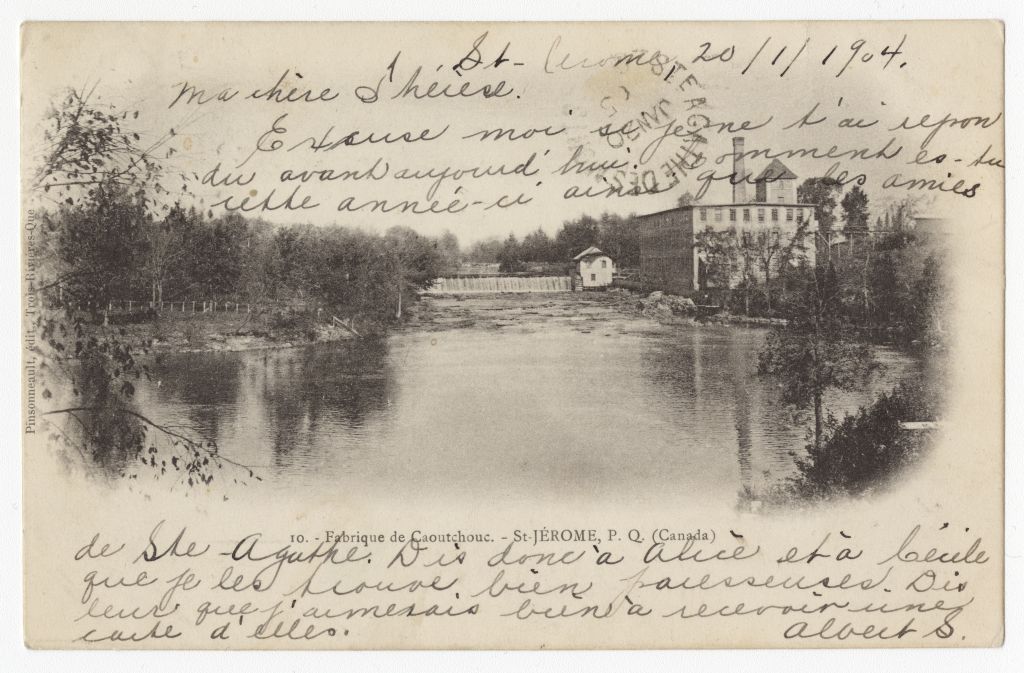 St-Jerome, 20/1/1904.
Ma chère Thérèse.
Excuse moi si je ne t'ai repon
du avant aujourd'hui. Comment es-tu
cette année-ci ainsi que les amies
STE AGATHE DES
JAN
Pinsonneault, édit., Trois-Rivières-Que
10. - Fabrique de Caoutchouc. - St-JÉROME, P. Q. (Canada)
de Ste-Agathe. Dis donc à Alice et à Cécile
que je les trouve bien paresseuses. Dis
leur que j'aimerais bien à recevoir une
carte d'elles. Albert S.